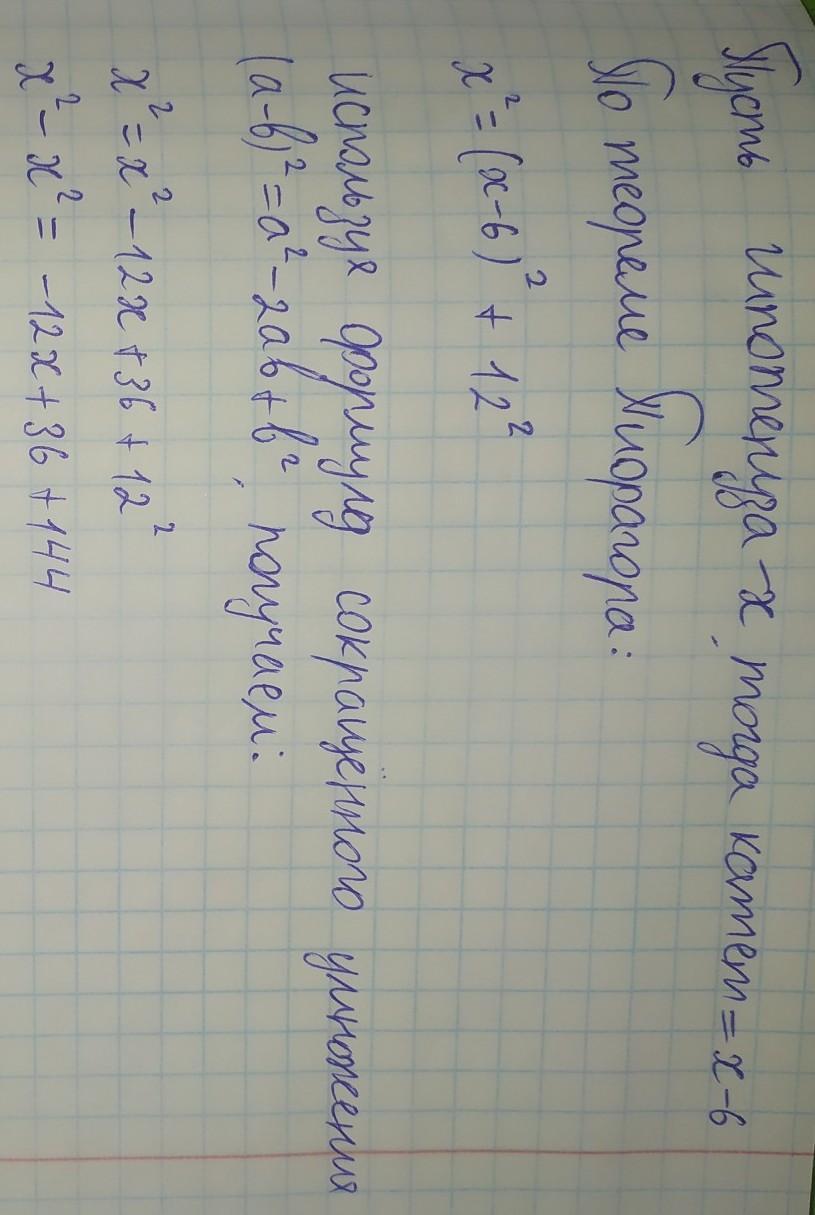 Пусть гипотенуза – x, тогда катет = x-6
По теореме Пифагора:
x² = (x-6)² + 12²
используя формулу сокращённого умножения
(a-b)² = a² - 2ab + b², получаем:
x² = x² - 12x + 36 + 12²
x² - x² = -12x + 36 + 144